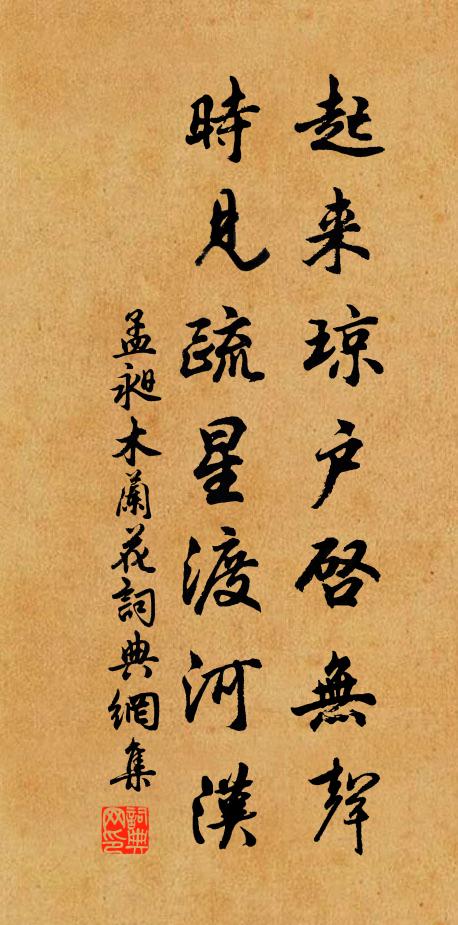 起来琼户啓無聲
時見疏星渡河漢
孟昶木蘭花詞典網集
詞典网印